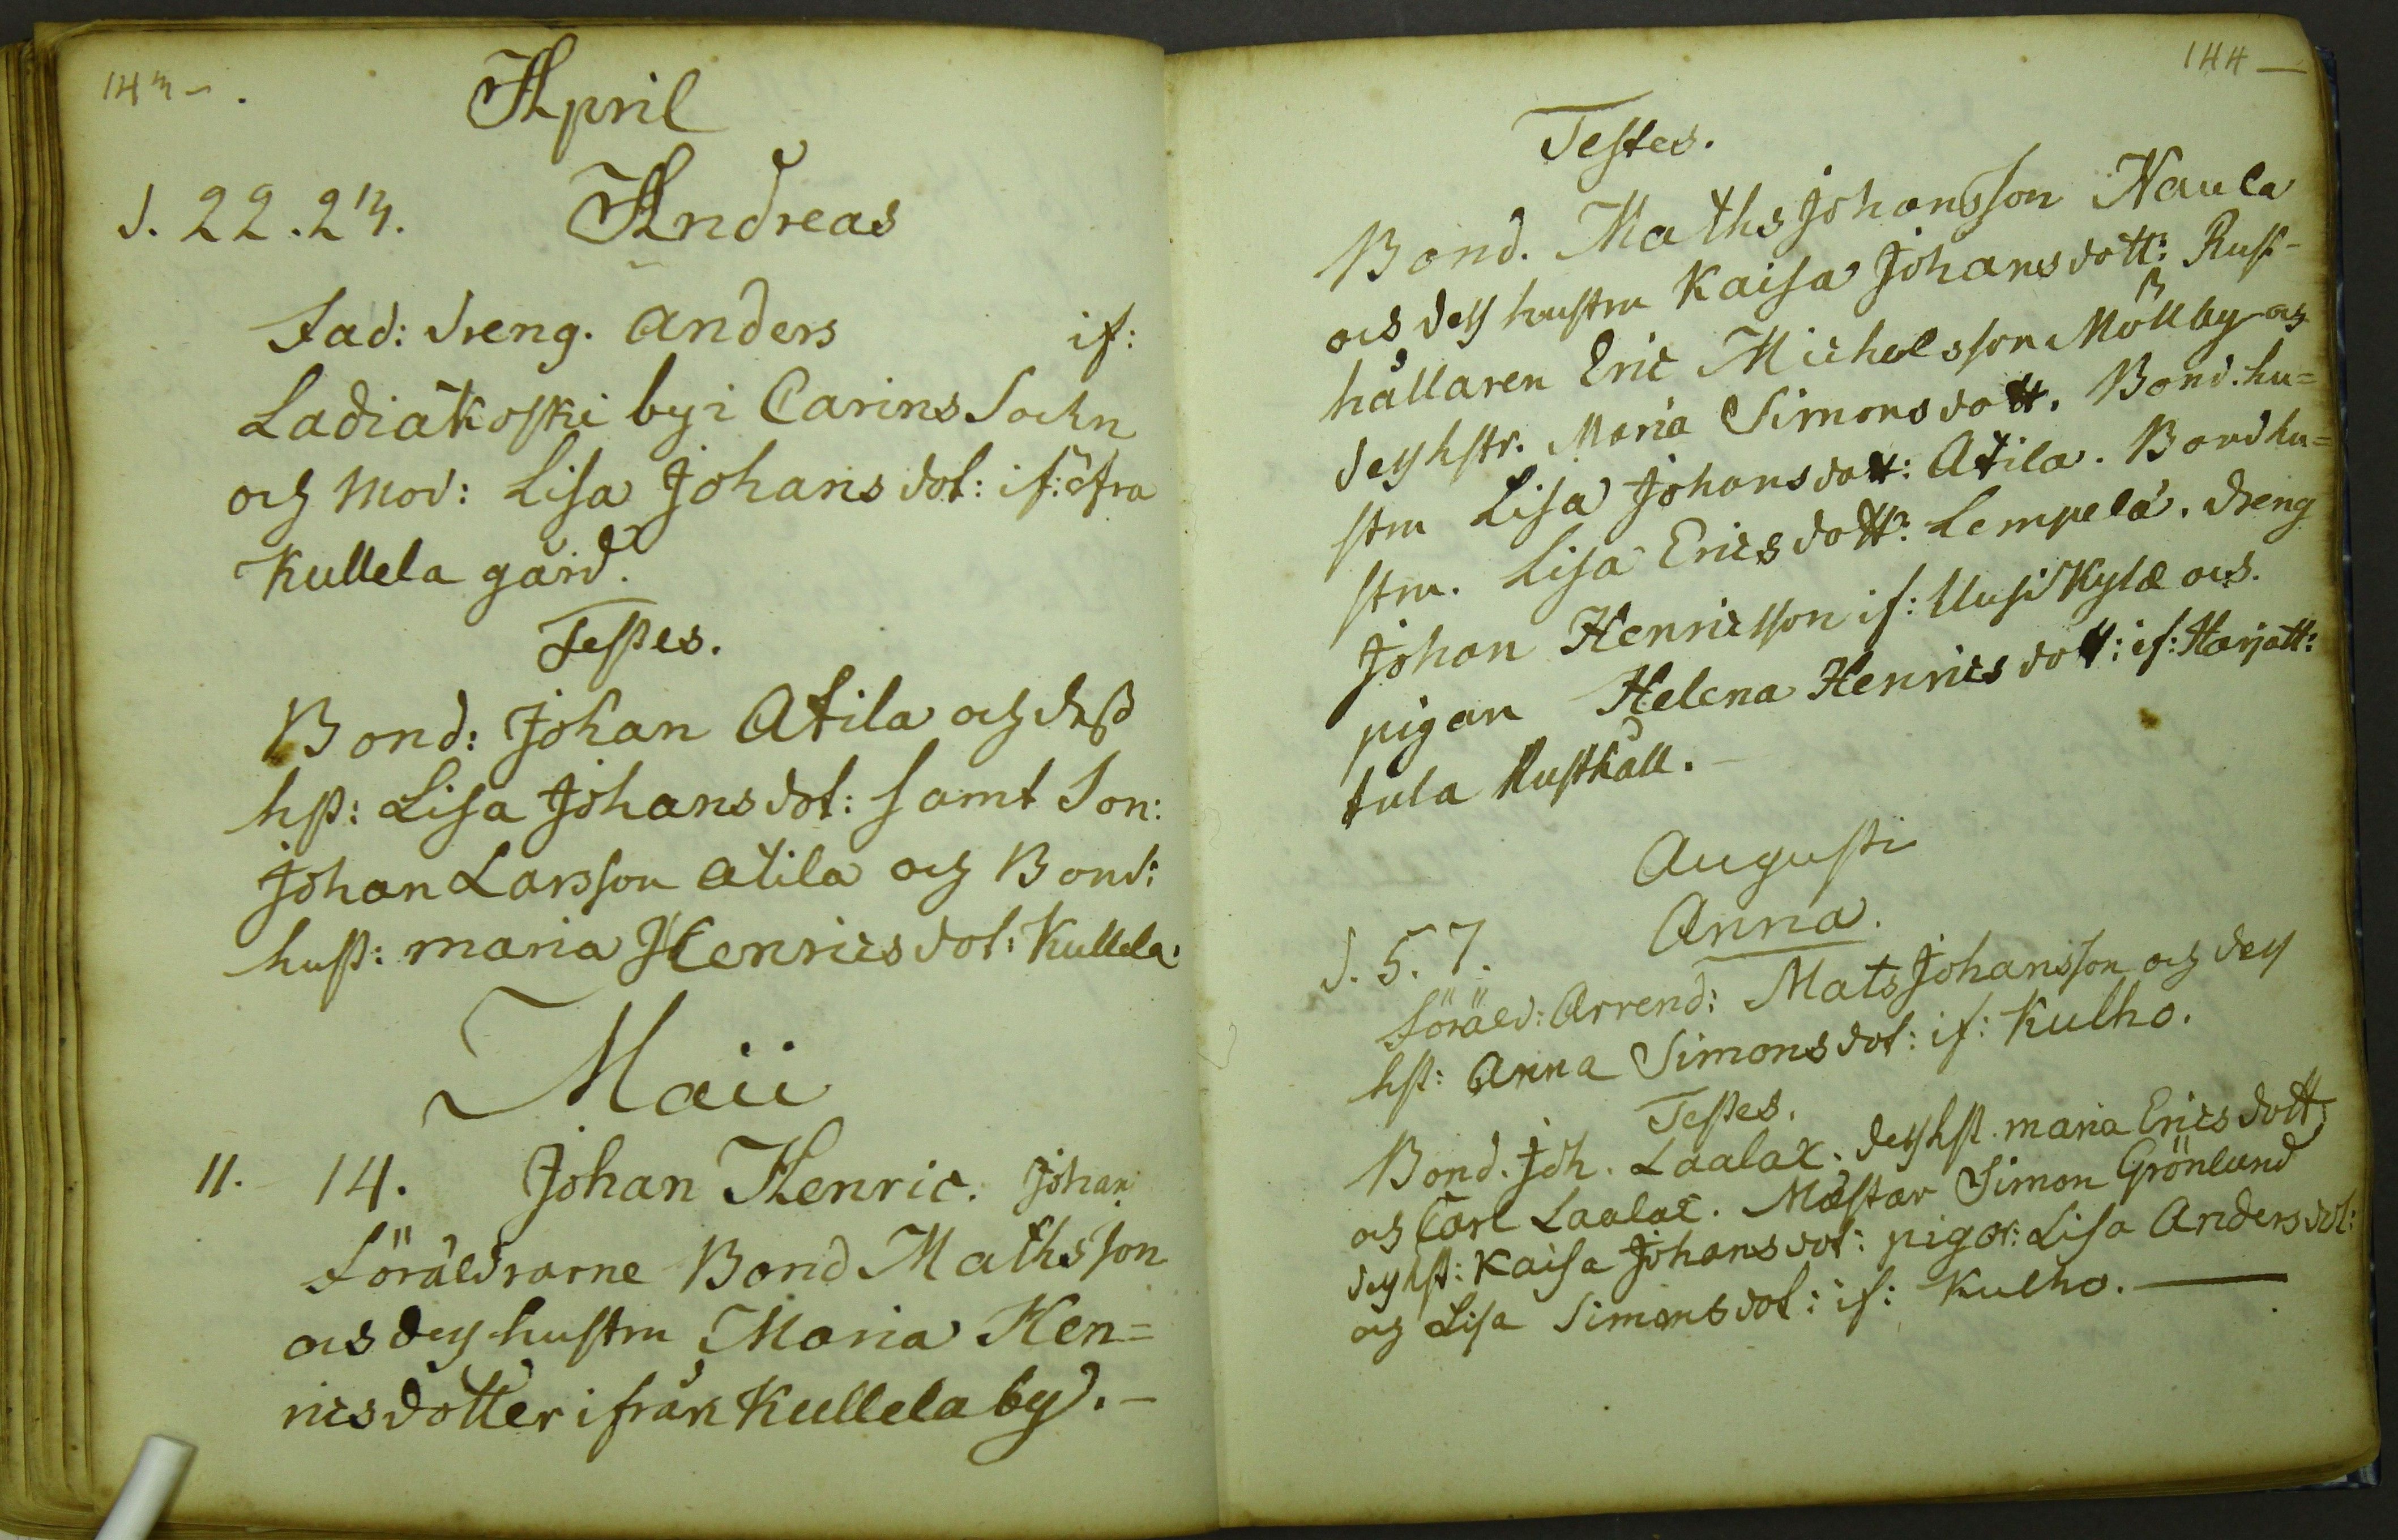 143 -
April
d. 22. 23. Andreas
Fad: dreng. Anders if:
Ladiakoski by i Carins Sochn
och Mod: Lisa Johans dot: if: öfra
Kullela gård.
Testes.
Bond: Johan Atila och dess
hst: Lisa Johans dot: samt Son:
Johan Larsson Atila och Bond:
hust: maria Henrics dot: Kullela.
Maii
11. 14. Johan Henric. Johan
Föräldrarne Bond Mathsson
och dess hustru Maria Hen=
ricsdotter ifrån Kullela by. -
144 -
Testes.
Bond. Maths Johansson Naula
och dess hustru Kaisa Johans dott: Rust-
hållaren Eric Michelsson Möllby och
dess hstr. Maria Simons dott. Bond. hu=
stru Lisa Johans dott: Atila. Bond hu=
stru. Lisa Erics dott: Lempelä. dreng
Johan Henricsson if: Uusi Kylä och.
pigan Helena Henrics dott: if: Harjatt:
tula Rusthåll. -
Augusti
d. 5. 7. Anna.
Föräld: Arrend: Mats Johansson och dess
hst: Anna Simons dot: if: Kulho.
Testes.
Bond. Joh. Laalax. dess hst. maria Erics dott
och Carl Laalax. Mästar Simon Grönlund
dess hst: Kaisa Johans dot: pigor: Lisa Anders dot:
och Lisa Simons dot: if: Kulho. -